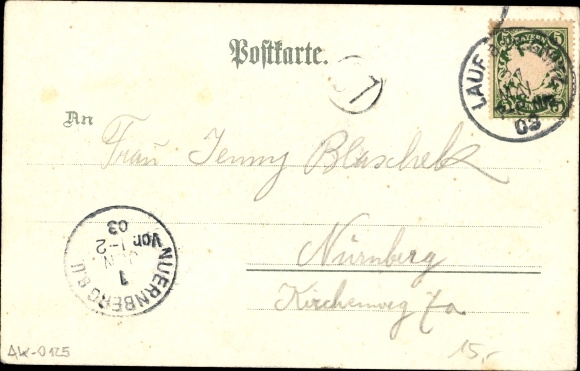 Postkarte.
BAYERN
5 5
LAUF
03
An
Frau Jenny Blaschek
Nürnberg
Kirchenweg 7a
NUERNBERG
1
JUN.
Vor. 1-2
03
AK-0125
15,-